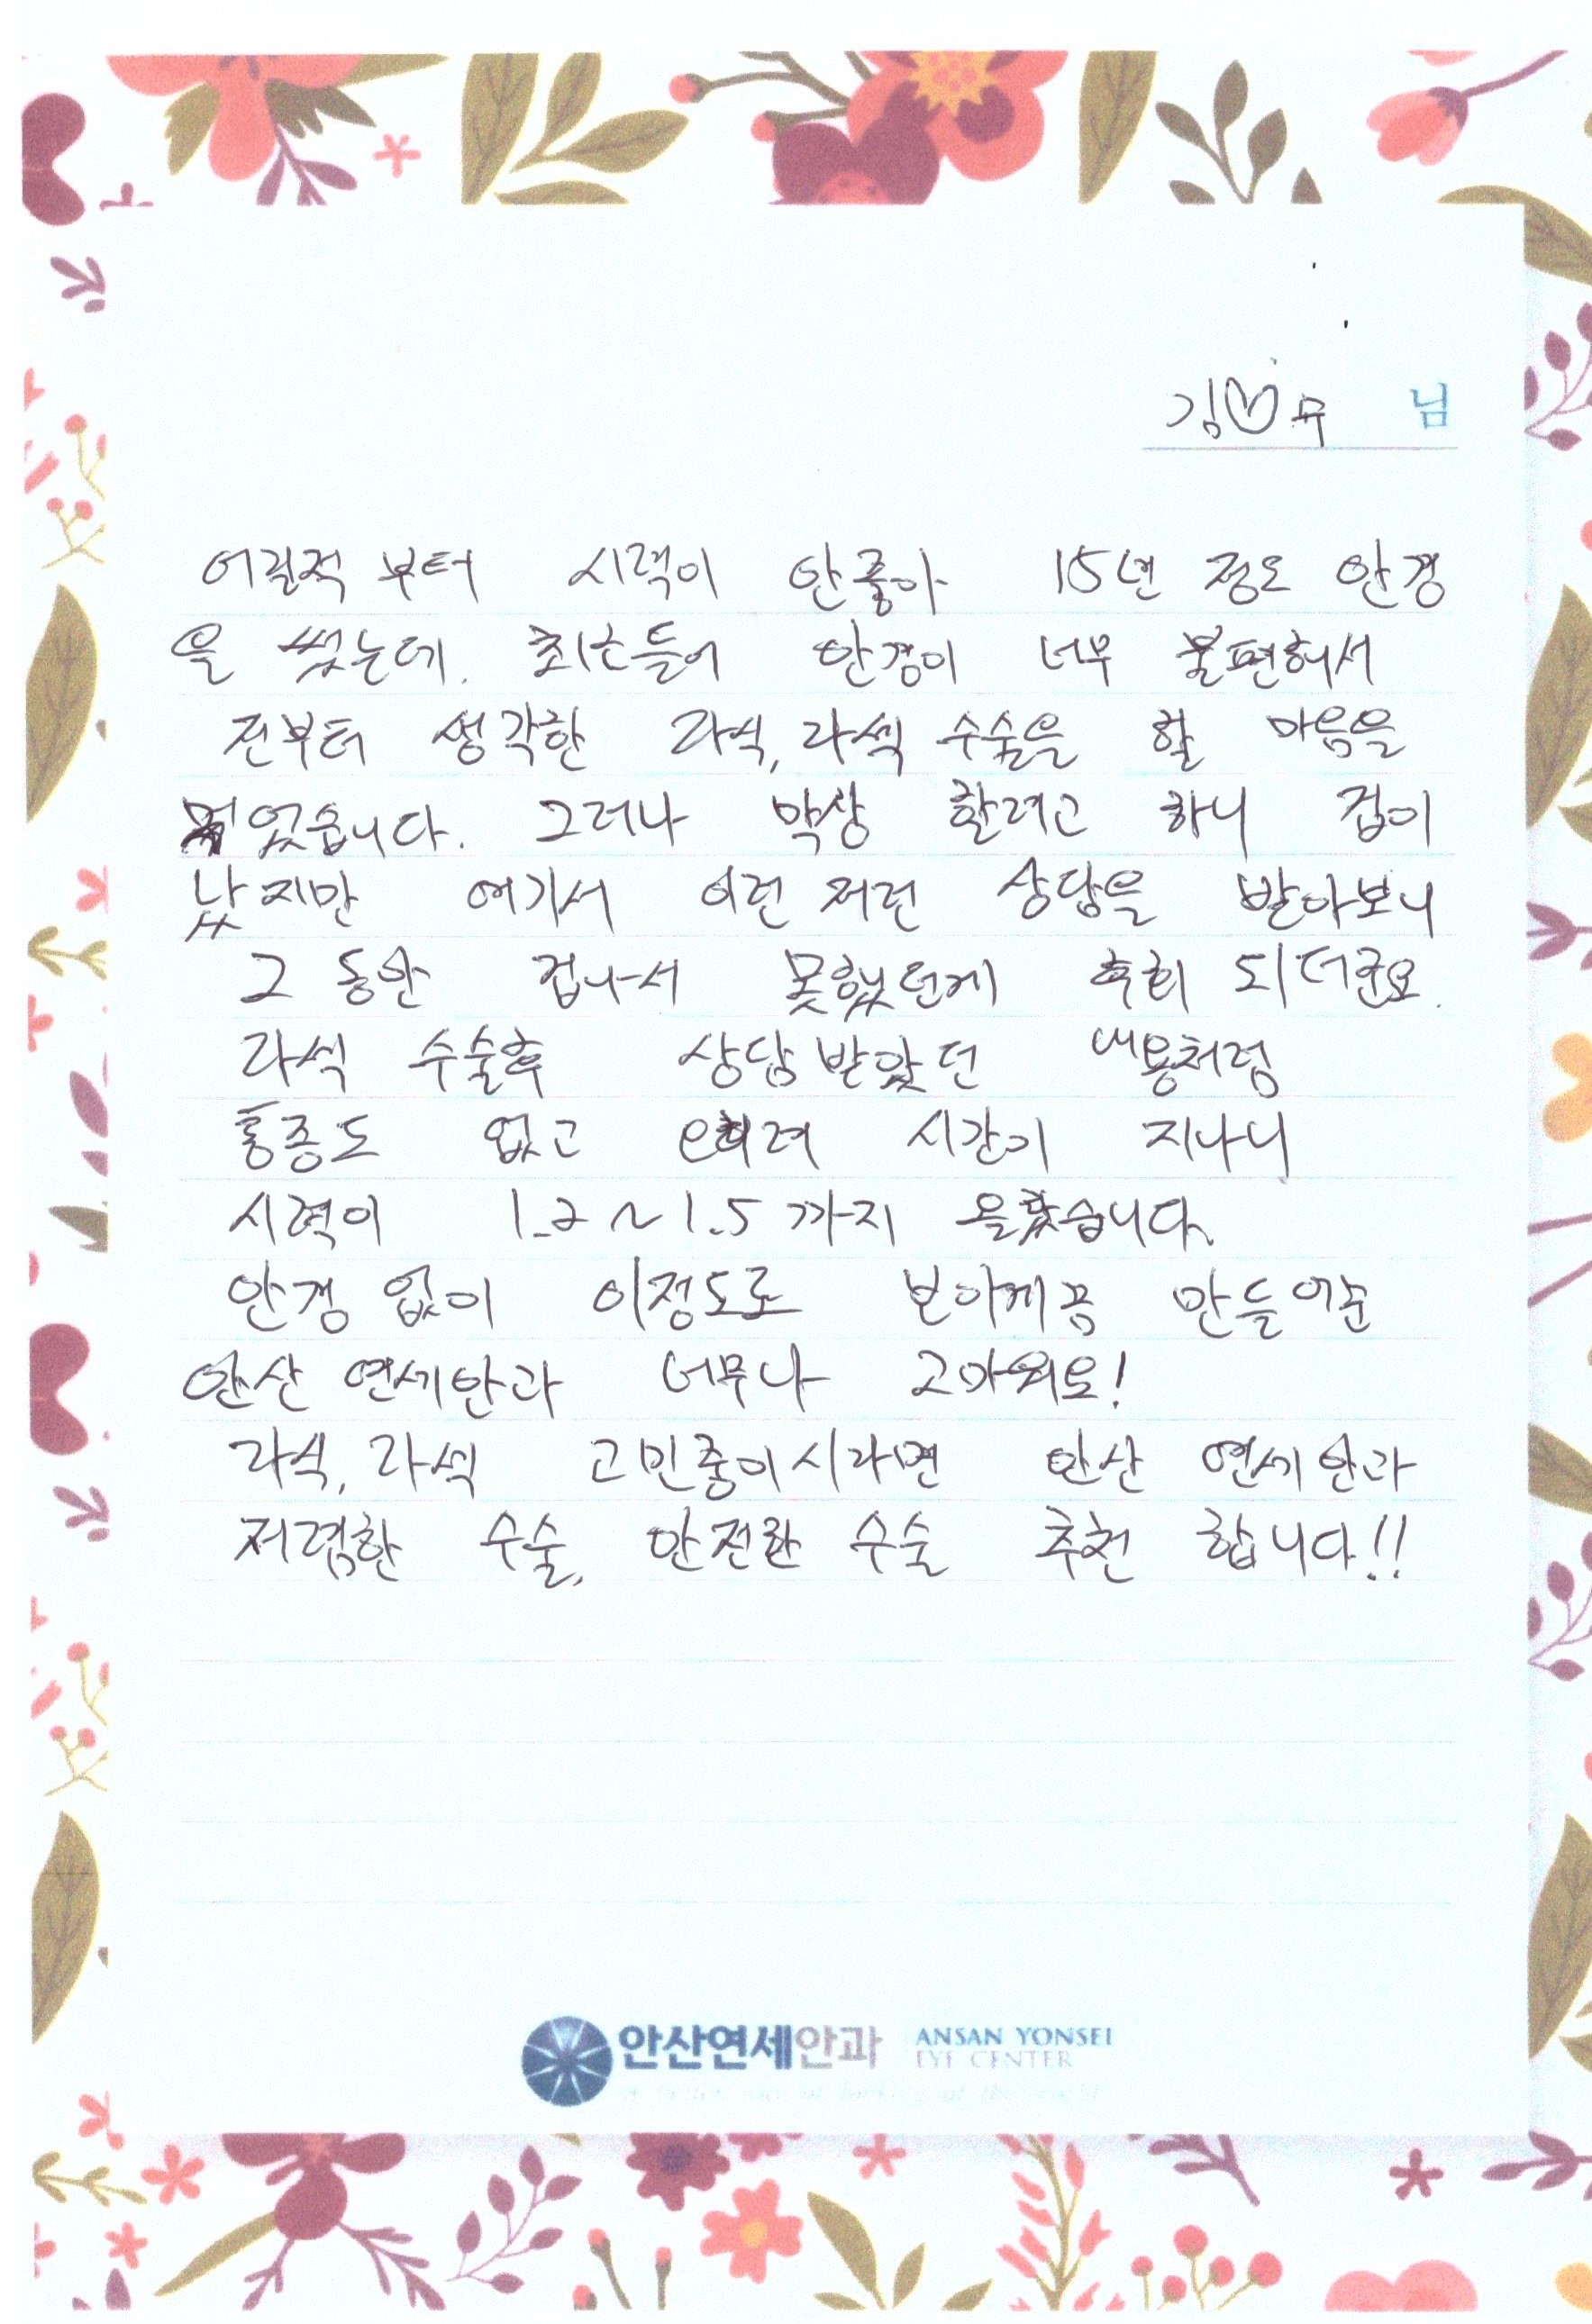 김♡무 님
어릴적 부터 시력이 안좋아 15년 정도 안경
을 썼는데. 최근들어 안경이 너무 불편해서
전부터 생각한 라식, 라섹 수술을 할 마음을
먹었습니다. 그러나 막상 할려고 하니 겁이
났지만 여기서 이런 저런 상담을 받아보니
그 동안 겁나서 못했던게 후회 되더군요.
라섹 수술후 상담받았던 내용처럼
통증도 없고 오히려 시간이 지나니
시력이 1.2~1.5까지 올랐습니다.
안경 없이 이정도로 보이게끔 만들어준
안산 연세안과 너무나 고마워요!
라식, 라섹 고민중이시라면 안산 연세안과
저렴한 수술, 안전한 수술 추천 합니다!!
안산연세안과 ANSAN YONSEI
EYE CENTER